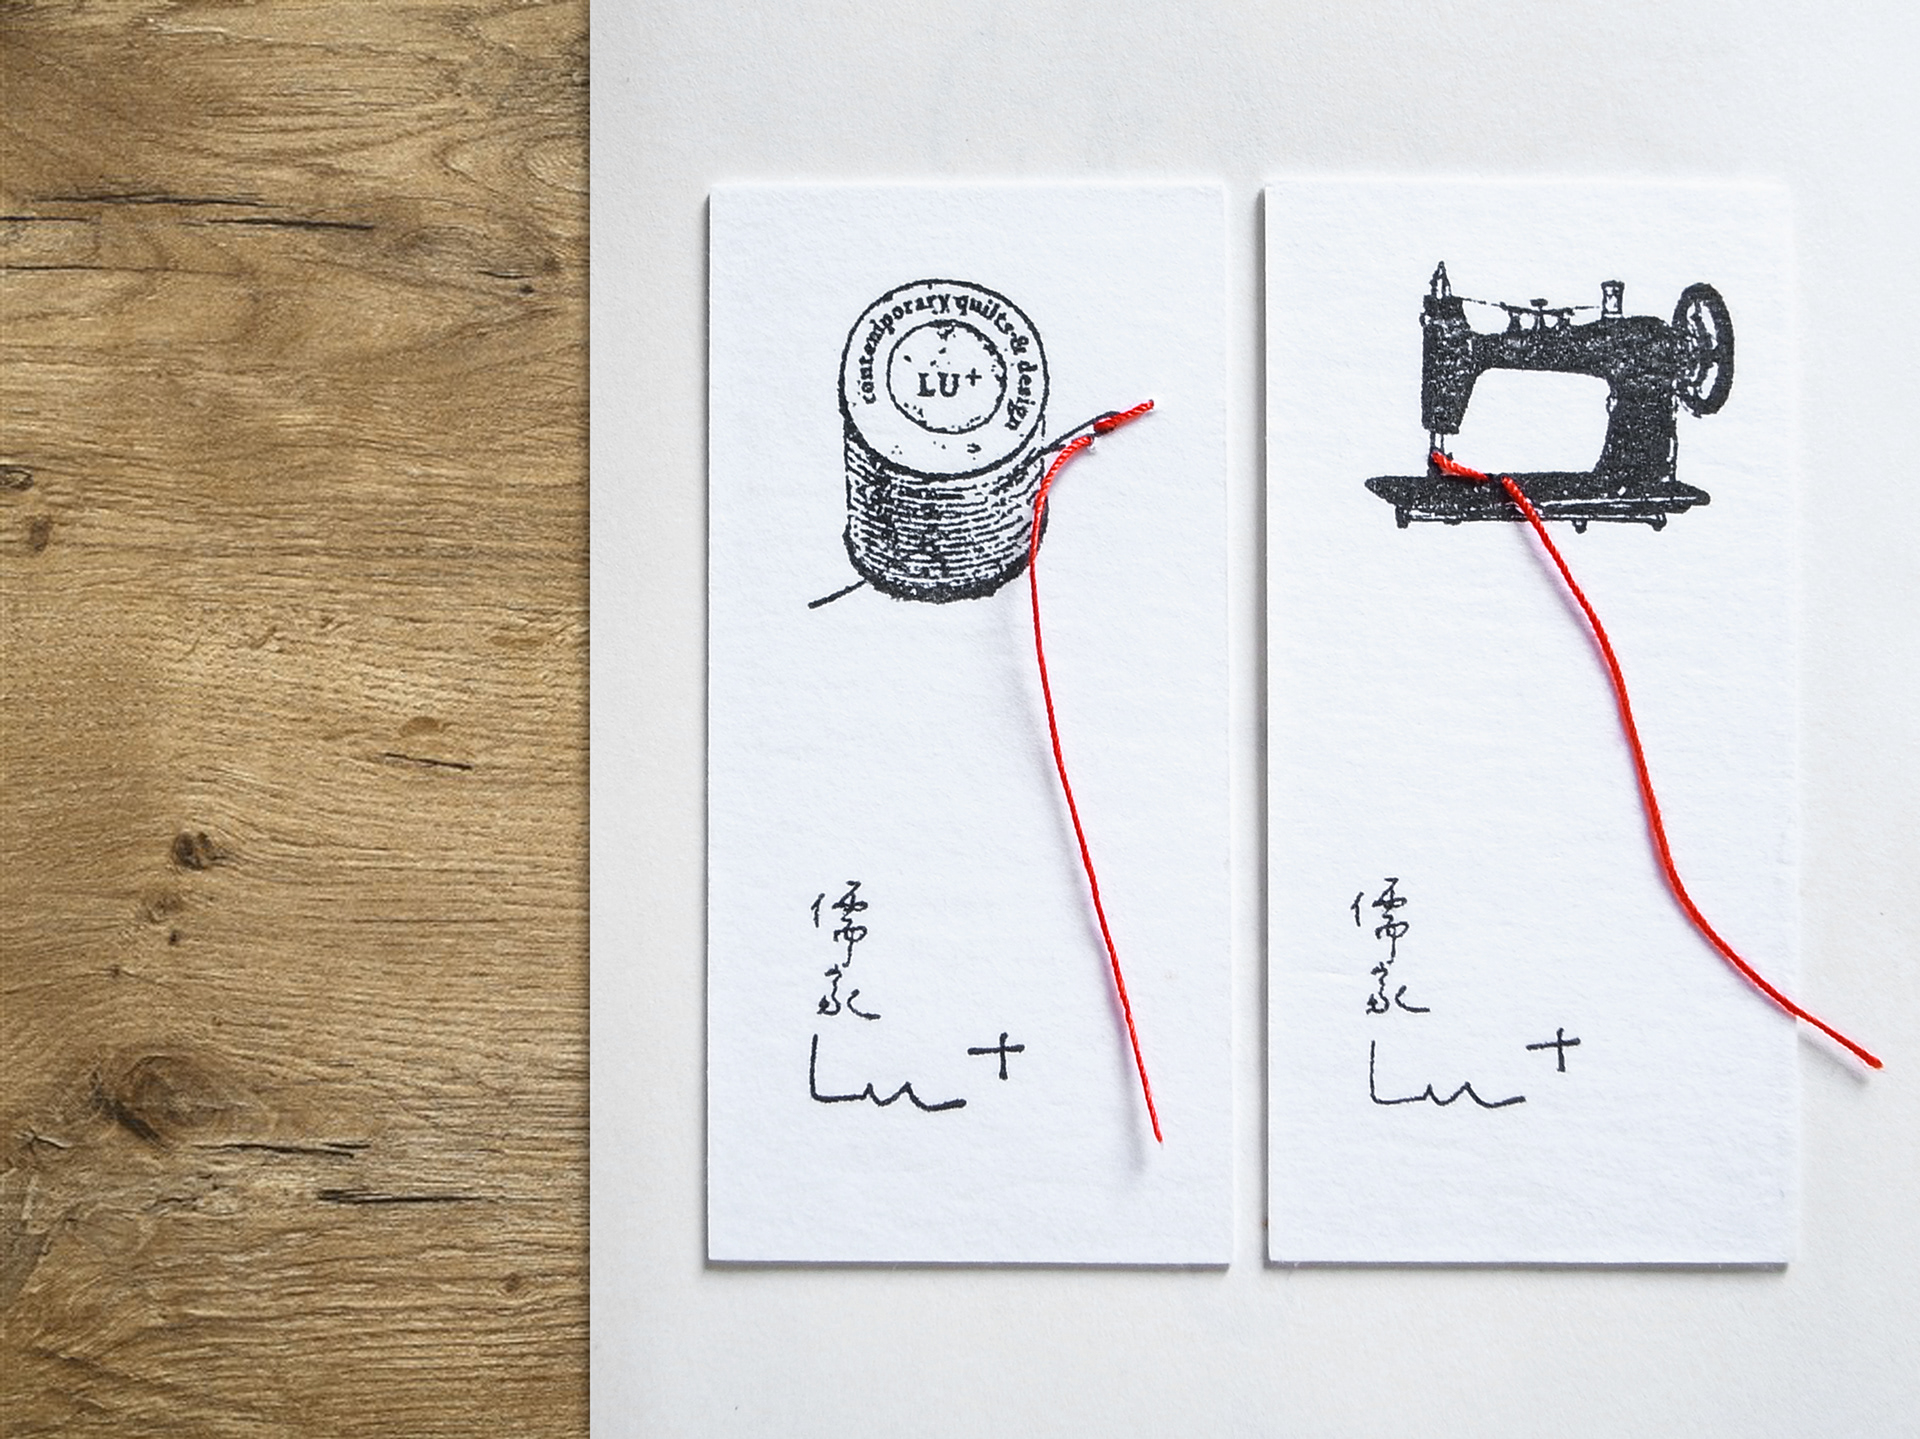 contemporary quilts & design
LU+
儒
家
Lu+
儒
家
Lu+